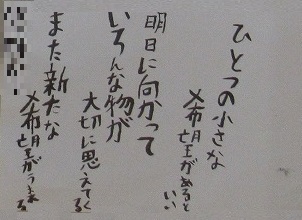 ひとつの小さな
希望があると
いい
明日に向かって
いろんな物が
大切に思えてくる
また新たな
希望がうまれる